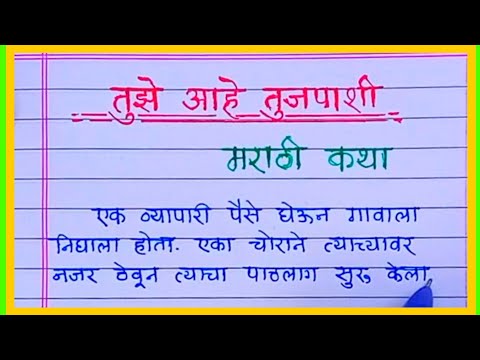 तुझे आहे तुजपाशी
मराठी कथा
एक व्यापारी पैसे घेऊन गावाला
निघाला होता. एका चोराने त्याच्यावर
नजर ठेवून त्याचा पाठलाग सुरु केला.